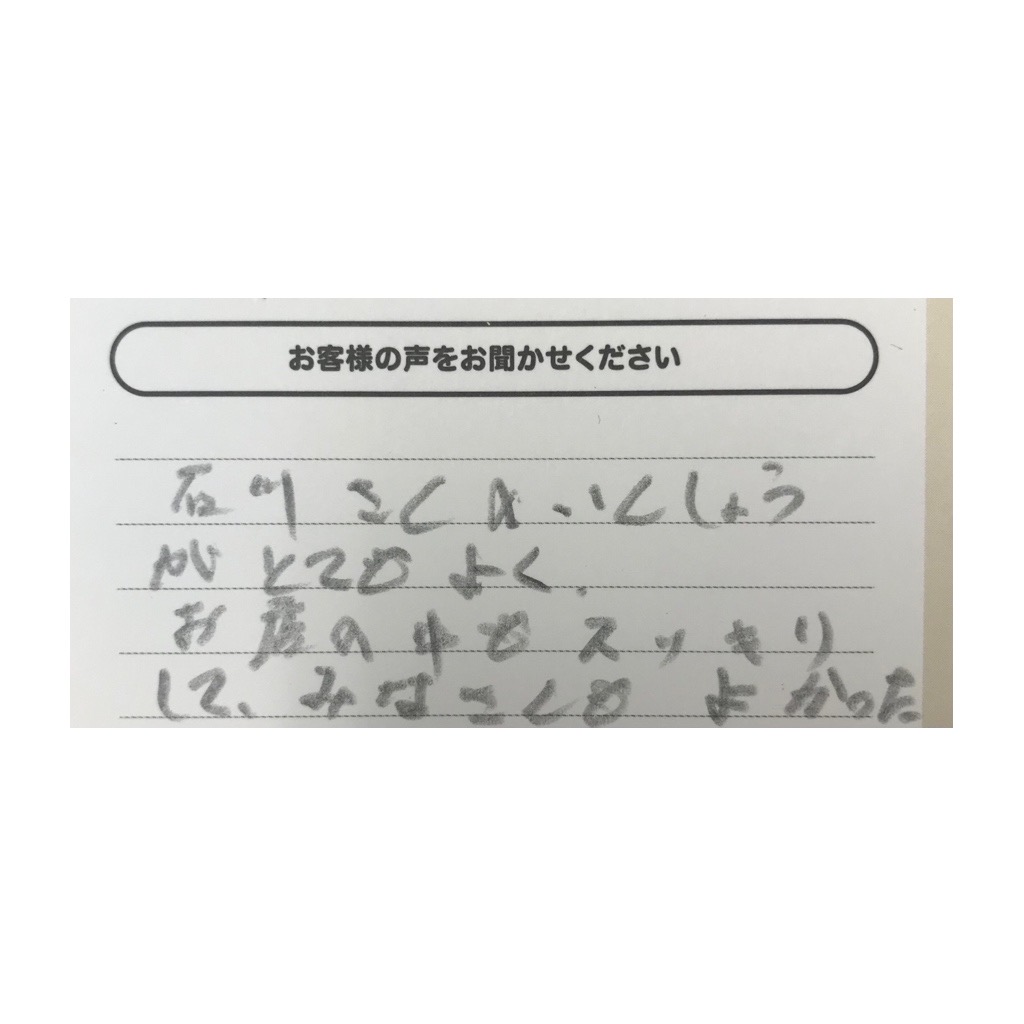 お客様の声をお聞かせください
石川さんはいんしょう
がとてもよく、
お店の中もスッキリ
して、みなさんもよかった